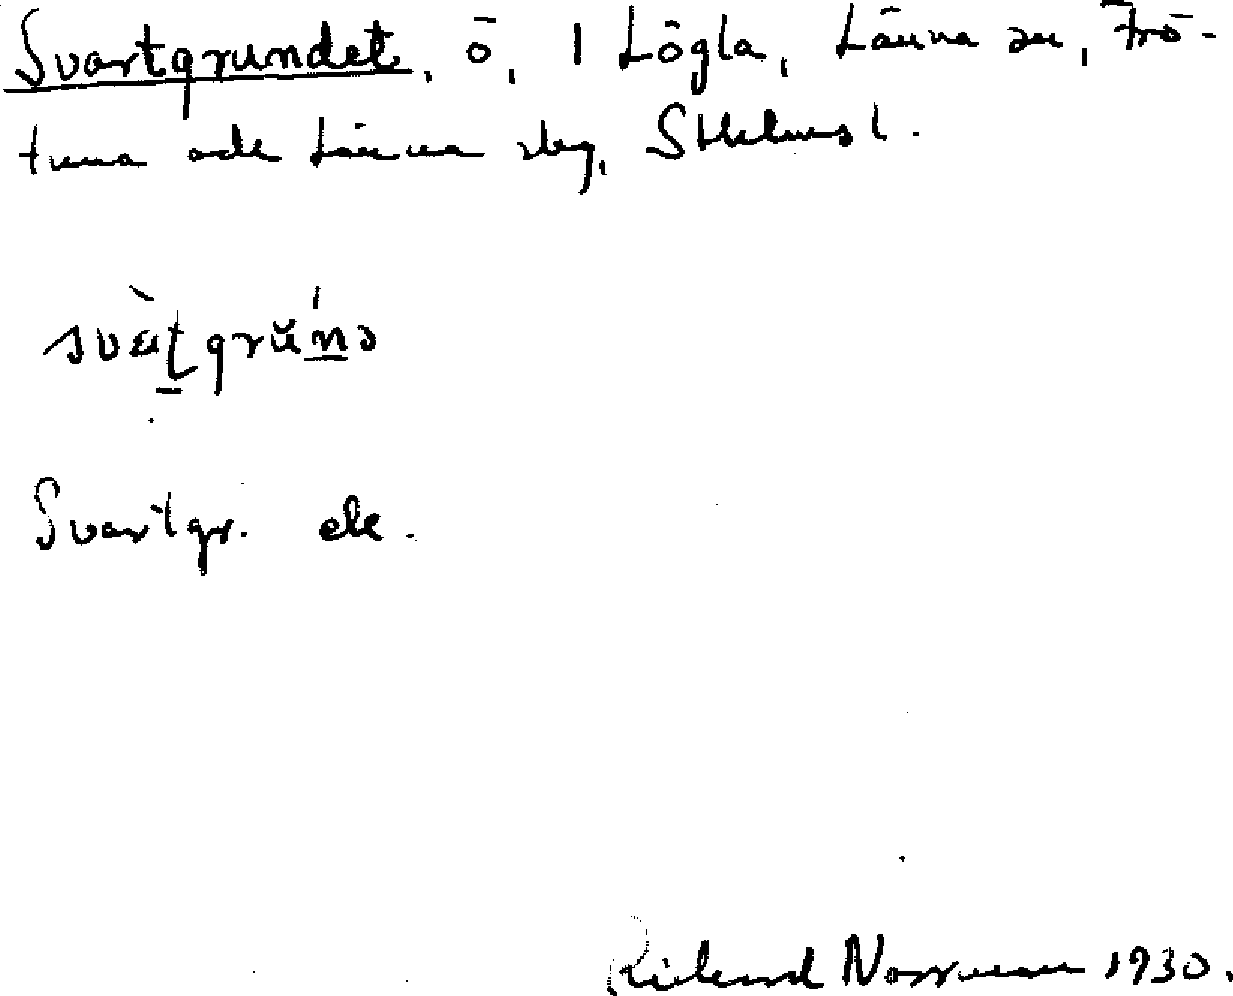 Svartgrundet, ö, 1 Lögla, Länna sn, Frö-
tuna och Länna sbg, Sthlms l.
svàt̠grŭ́n̠ə
Svartgr. ek.
Rickard Norrman 1930.